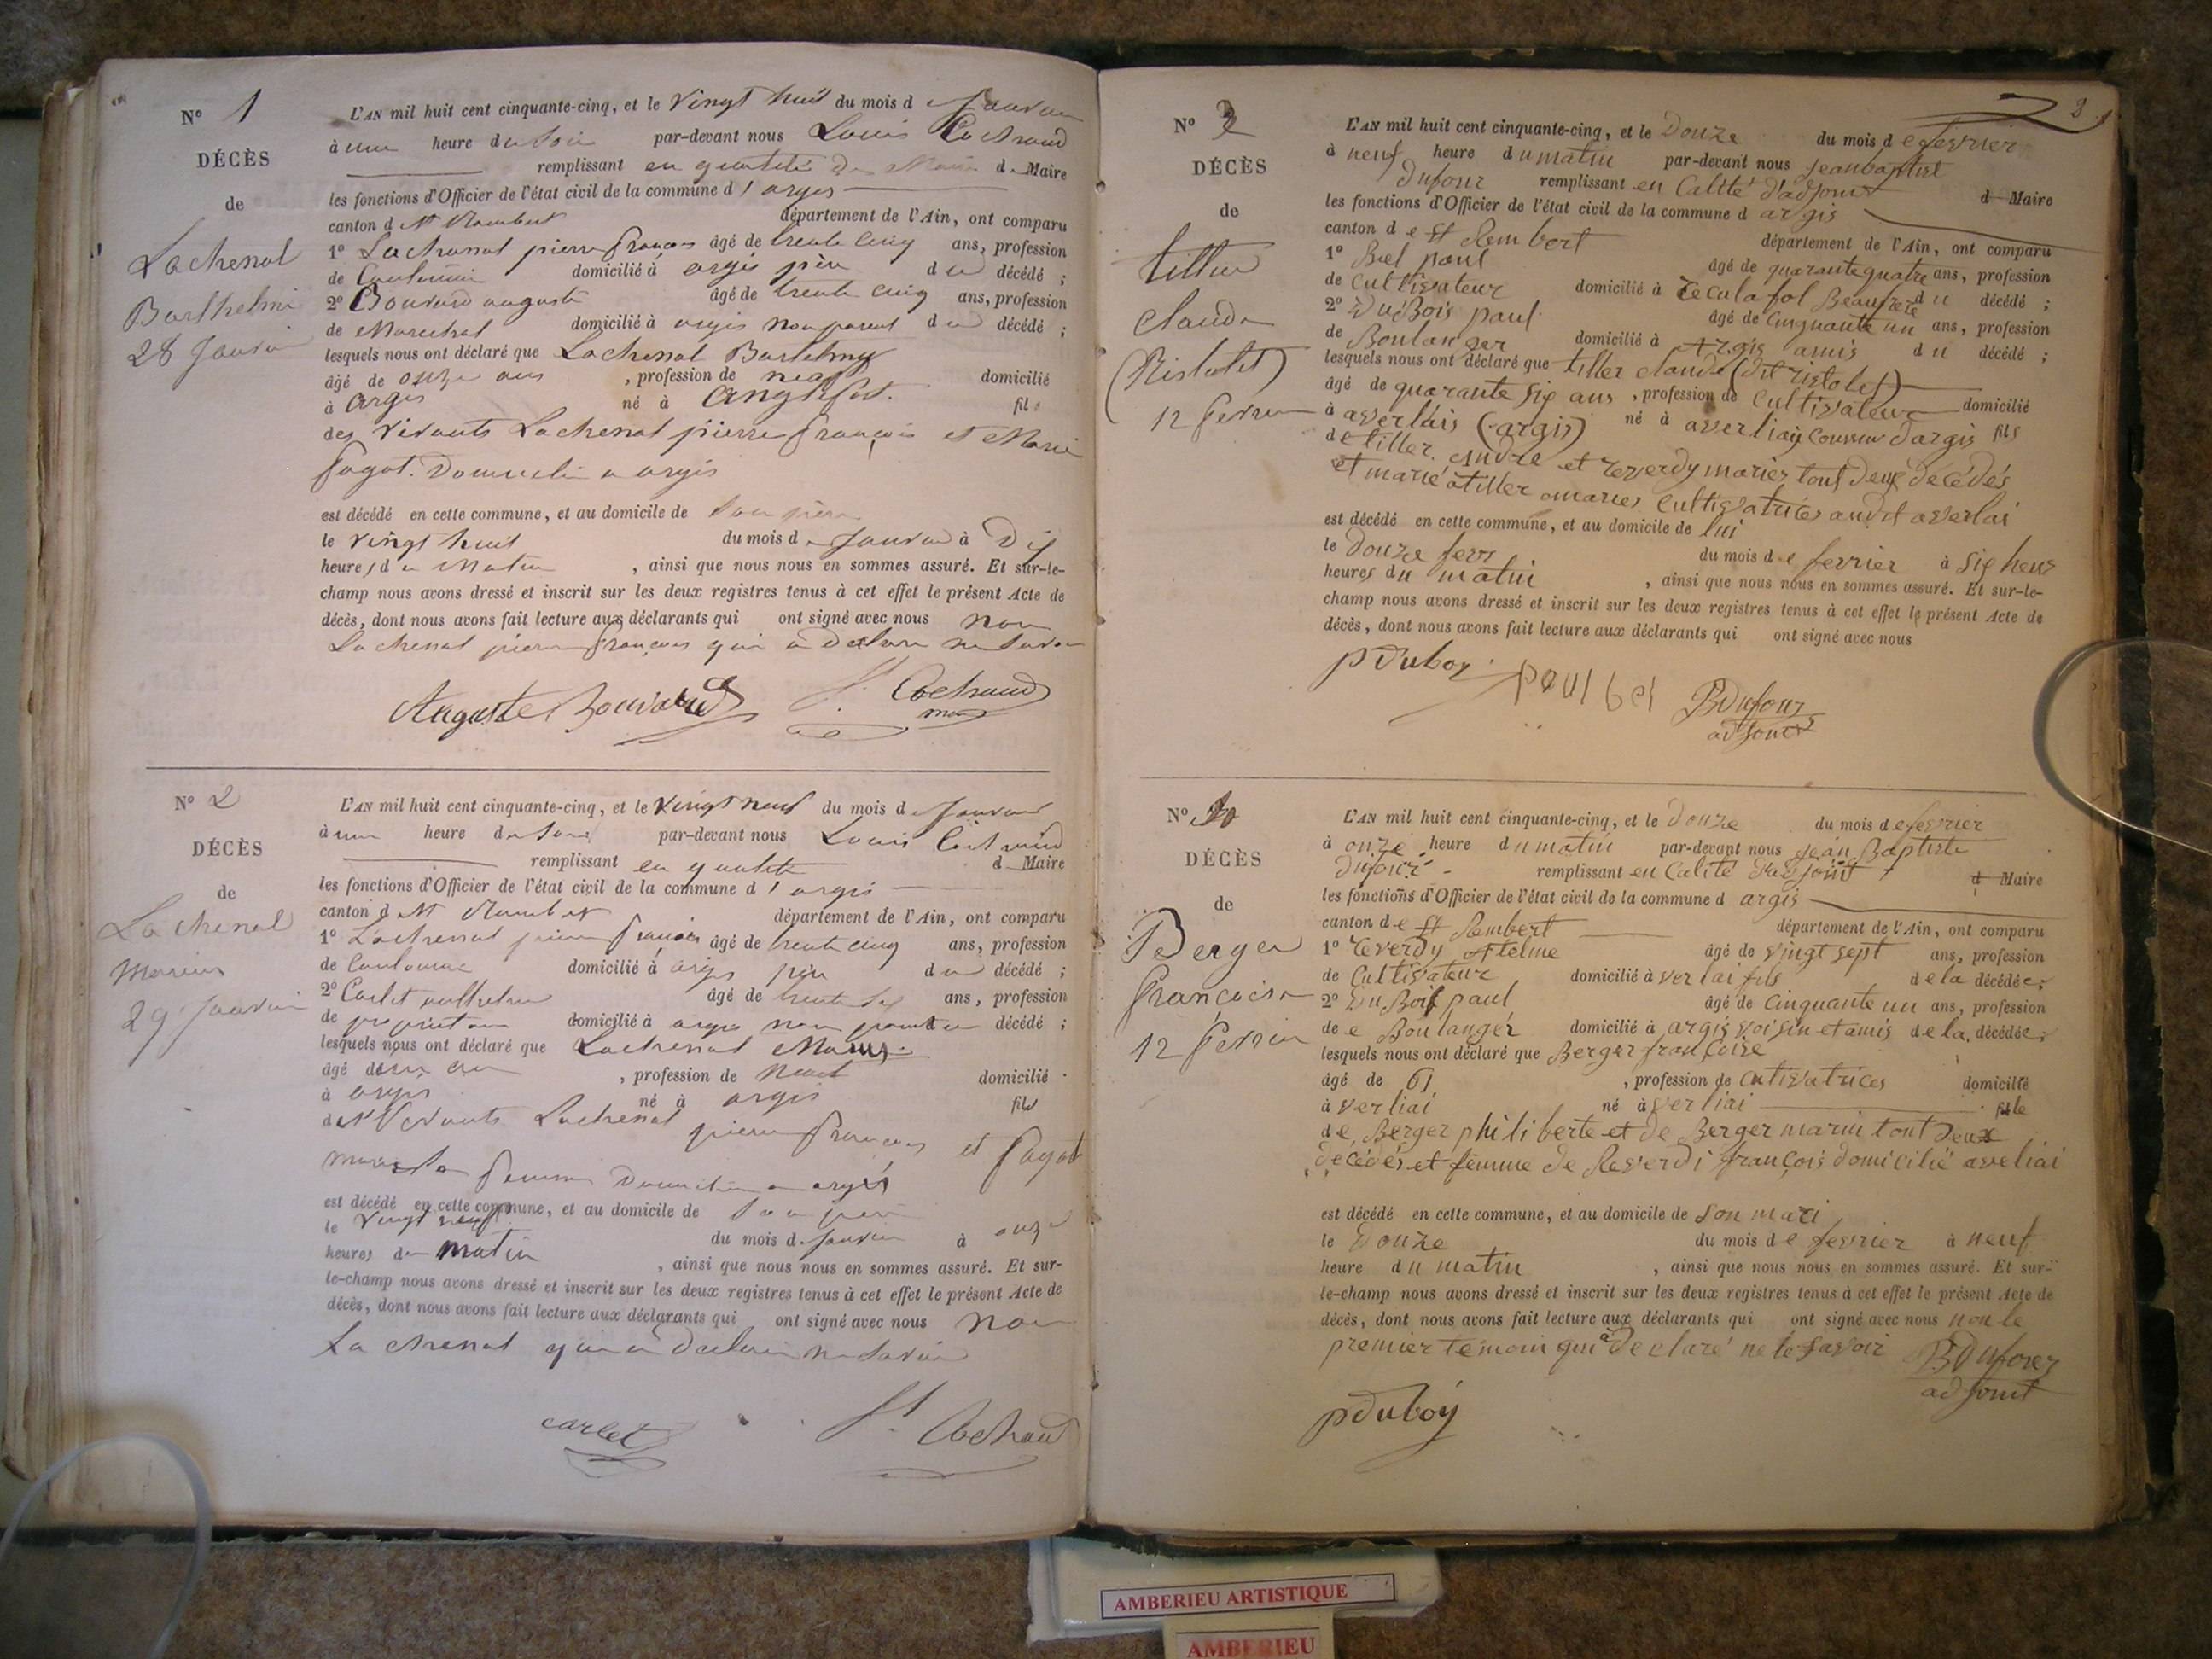 N° 1
DÉCÈS
de
Lachenal
Barthelmi
28 Janvier
L'AN mil huit cent cinquante-cinq, et le vingt huit du mois d e Janvier
à une heure du soir par-devant nous Louis Cochaud
remplissant en qualité de Maire d Maire
les fonctions d'Officier de l'état civil de la commune d'argis
canton d St Rambert département de l'Ain, ont comparu
1° Lachenal pierre françois âgé de trente cinq ans, profession
de domicilié à argis père du décédé ;
2° Bouvard auguste âgé de trente cinq ans, profession
de Marechal domicilié à argis non parent du décédé ;
lesquels nous ont déclaré que Lachenal Bartelmy
âgé de onze ans , profession de domicilié
à argis né à Anglefort. fils
des vivants Lachenal pierre françois et Marie
fagot. Domicilié a argis
est décédé en cette commune, et au domicile de son père
le vingt huit du mois de Janvier à Dix
heures du Matin , ainsi que nous nous en sommes assuré. Et sur-le-
champ nous avons dressé et inscrit sur les deux registres tenus à cet effet le présent Acte de
décès, dont nous avons fait lecture aux déclarants qui ont signé avec nous non
Lachenal pierre françois qui a declare ne savoir
Auguste Bouvard L. Cochaud
N° 2
DÉCÈS
de
Lachenal
Marius
29 Janvier
L'AN mil huit cent cinquante-cinq, et le vingt neuf du mois de Janvier
à une heure du soir par-devant nous Louis Cochaud
remplissant en qualité d Maire
les fonctions d'Officier de l'état civil de la commune d'argis
canton d St Rambert département de l'Ain, ont comparu
1° Lachenal pierre françois âgé de trente cinq ans, profession
de domicilié à argis père du décédé ;
2° Carlet âgé de trente six ans, profession
de proprietaire domicilié à argis non parent du décédé ;
lesquels nous ont déclaré que Lachenal Marius
âgé , profession de domicilié
à argis né à argis fils
de vivants Lachenal pierre françois et fagot
femme Domicilié a argis
est décédé en cette commune, et au domicile de son père
le vingt neuf du mois de Janvier à onze
heures du matin , ainsi que nous nous en sommes assuré. Et sur-
le-champ nous avons dressé et inscrit sur les deux registres tenus à cet effet le présent Acte de
décès, dont nous avons fait lecture aux déclarants qui ont signé avec nous non
Lachenal qui a declare ne savoir
carlet L. Cochaud
8
N° 3
DÉCÈS
de
tiller
claude
(Ristolet)
12 fevrier
L'AN mil huit cent cinquante-cinq, et le Douze du mois de fevrier
à neuf heure du matin par-devant nous jean baptist
dufour remplissant en Calité d'adjoint d Maire
les fonctions d'Officier de l'état civil de la commune d argis
canton de st Rembert département de l'Ain, ont comparu
1° Bel paul âgé de quarante quatre ans, profession
de cultivateur domicilié à Reculafol Beaufrere du décédé ;
2° DuBois paul âgé de cinquante un ans, profession
de Boulanger domicilié à Argis amis du décédé ;
lesquels nous ont déclaré que tiller claude (dit ristolet)
âgé de quarante six ans , profession de cultivateur domicilié
à averlais (argis) né à averliaŷ commun d'argis fils
de tiller. andre et reverdy maries tout deux decédés
et marié a tiller maries cultivatrices audit averlai
est décédé en cette commune, et au domicile de lui
le Douze fevr du mois de fevrier à six heur
heures du matin , ainsi que nous nous en sommes assuré. Et sur-le-
champ nous avons dressé et inscrit sur les deux registres tenus à cet effet le présent Acte de
décès, dont nous avons fait lecture aux déclarants qui ont signé avec nous
p duboy paul bel B Dufour
adjoint
N°
DÉCÈS
de
Berger
françoise
12 fevrier
L'AN mil huit cent cinquante-cinq, et le Douze du mois de fevrier
à onze heure du matin par-devant nous jean Baptiste
Dufour remplissant en Calité d'adjoint d Maire
les fonctions d'Officier de l'état civil de la commune d argis
canton de st Rambert département de l'Ain, ont comparu
1° reverdy Atelme âgé de vingt sept ans, profession
de cultivateur domicilié à verlai fils de la décédée ;
2° Du Bois paul âgé de cinquante un ans, profession
de e Boulanger domicilié à argis voisin et amis de la décédée ;
lesquels nous ont déclaré que Berger françoise
âgé de 61 , profession de cutivatrices domicilié
à verliai né à verliai fille
de Berger philiberte et de Berger marin tout deux
decédés et femme de Reverdi françois domicilié averliai
est décédé en cette commune, et au domicile de son mari
le Douze du mois de fevrier à neuf
heure du matin , ainsi que nous nous en sommes assuré. Et sur-
le-champ nous avons dressé et inscrit sur les deux registres tenus à cet effet le présent Acte de
décès, dont nous avons fait lecture aux déclarants qui ont signé avec nous non le
premier temoin qui a declaré ne le savoir B Dufour
adjoint
p duboy
AMBERIEU ARTISTIQUE
AMBERIEU